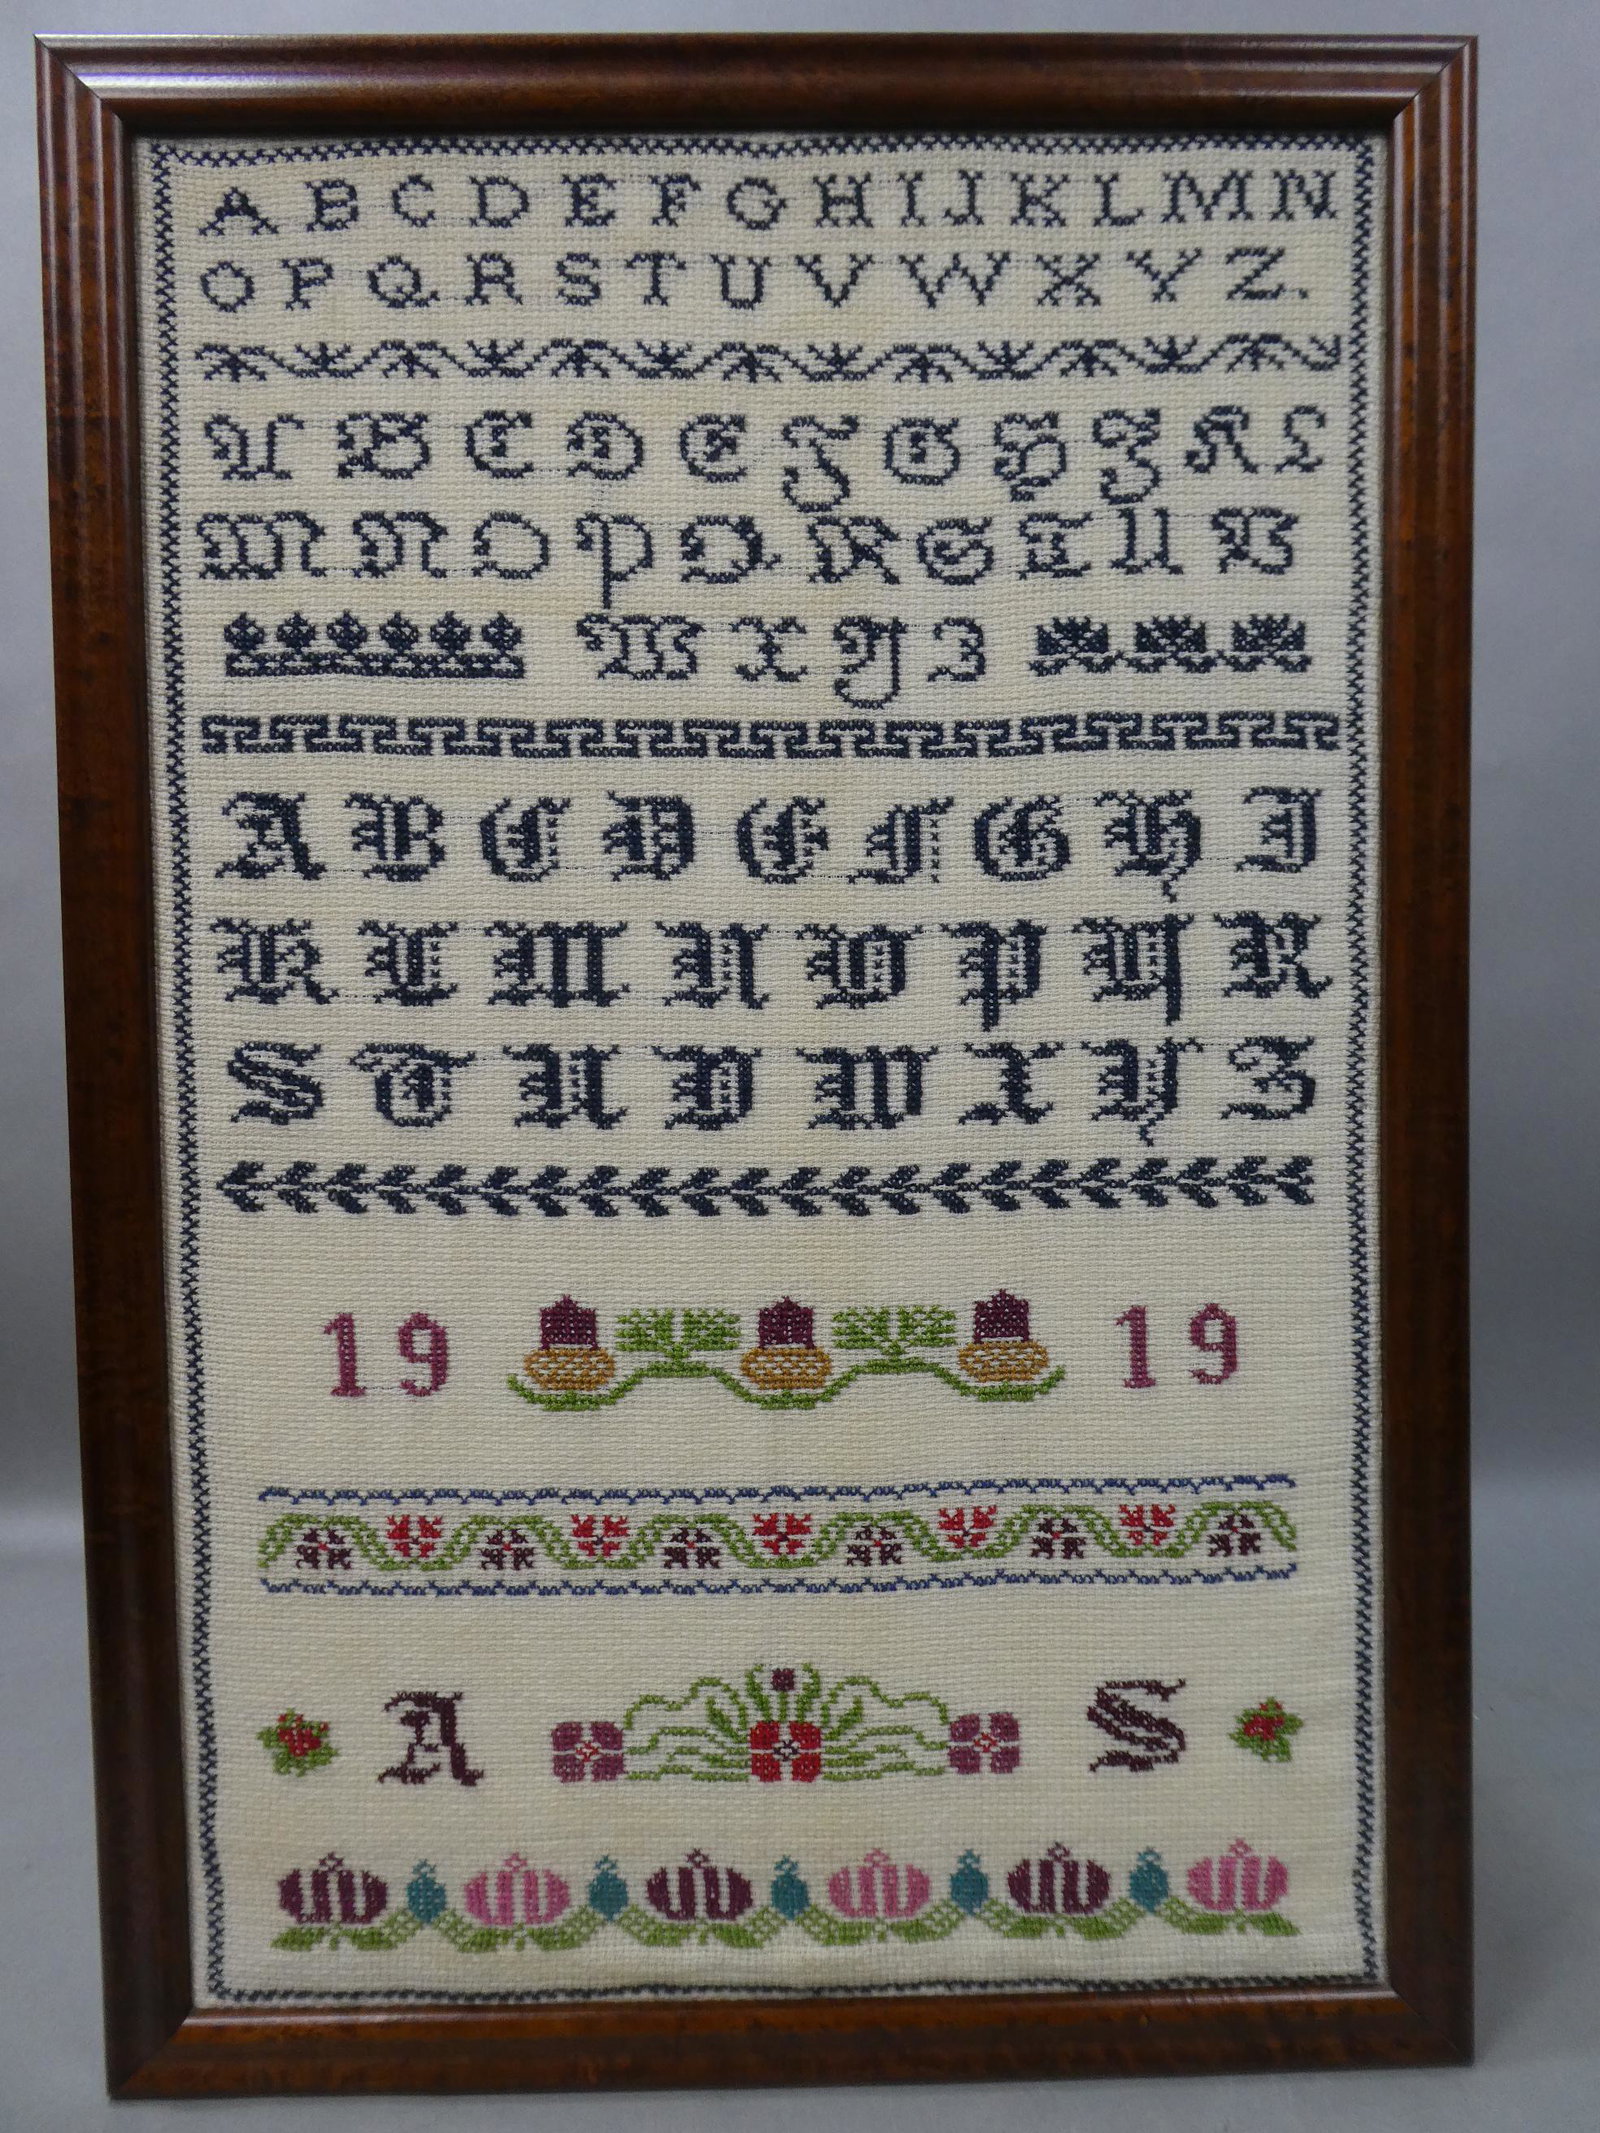 A B C D E F G H I J K L M N
O P Q R S T U V W X Y Z.
A B C D E F G H I K L
M N O P Q R S T U V
W X Y Z
A B C D E F G H I
K L M N O P Q R
S T U V W X Y Z
19 19
A S